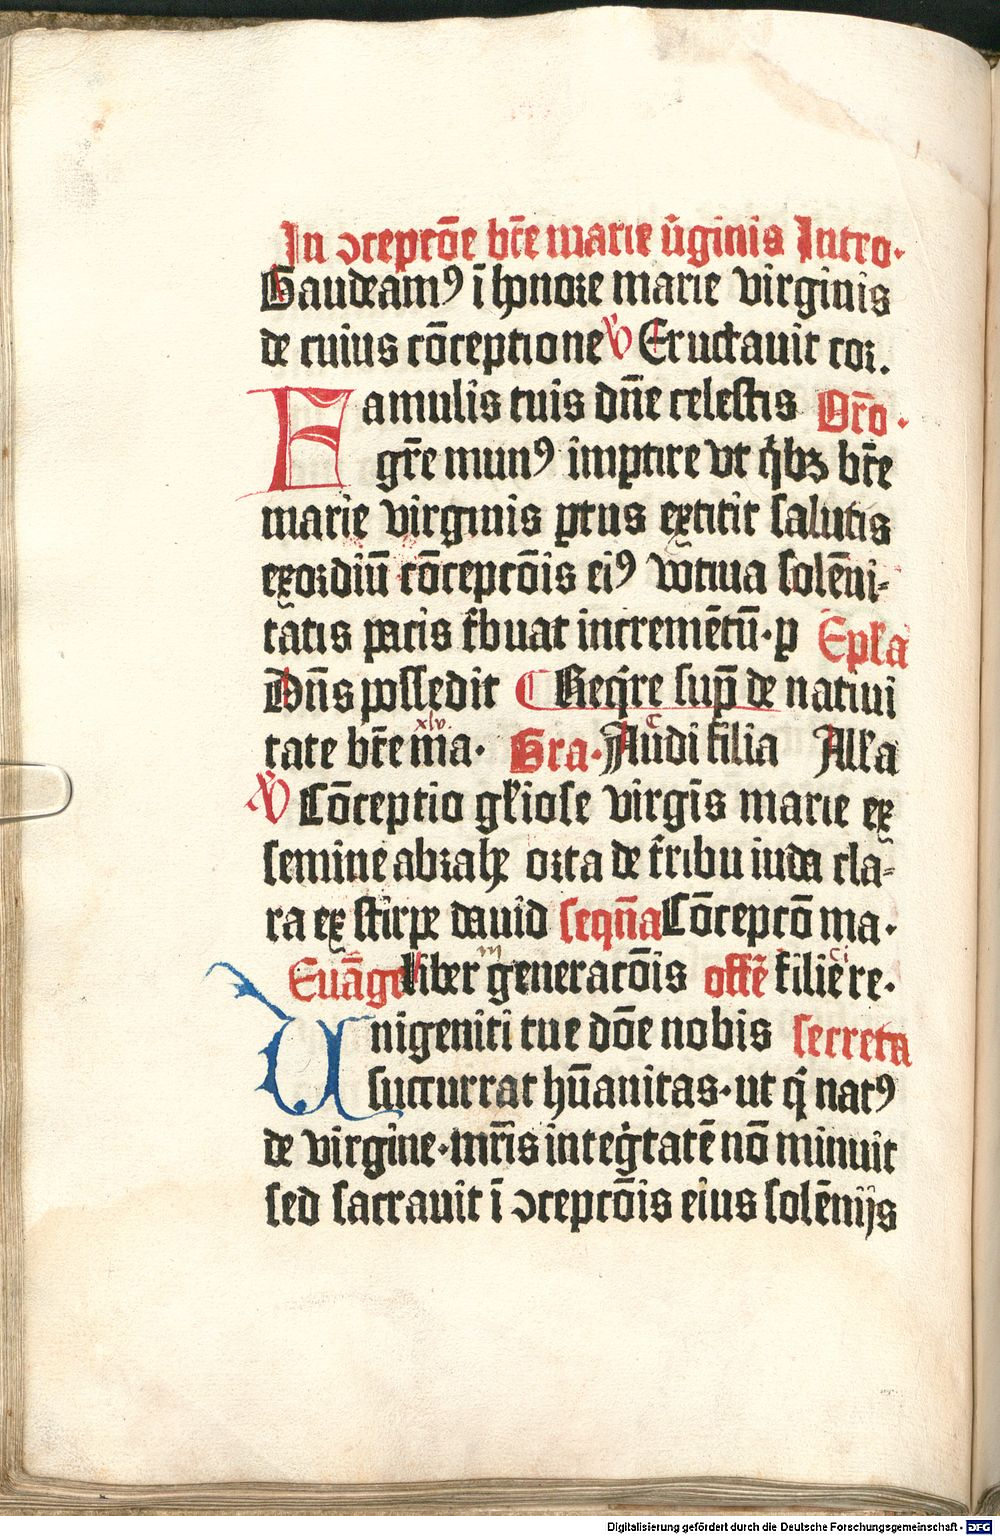 In ↄcepcōe bt̄e marie v̄ginis Intro·
Gaudeamꝰ ī honore marie virginis
de cuius cōceptione ℣ Eructauit cor.
Famulis tuis dn̄e celestis Or̄o·
gr̄e munꝰ impartire vt qͥbꝫ bt̄e
marie virginis ꝑtus extitit salutis
exordiū cōcepcōis eiꝰ votiua solēni-
tatis pacis t̄buat incremētū· ꝑ Ep̄la
Dn̄s possedit ¶ Req̇re sup̄ de natiui
tate bt̄e ma· xlv. Gra· Audi filia All̄a
℣ Cōceptio gl̄iose virgīs marie ex
semine abrahe orta de tribu iuda cla-
ra ex stirpe dauid seqn̄a Cōcepcō ma·
Euāge liber generacōis offē filie re·
Unigeniti tue dōe nobis secreta
succurrat hūanitas· ut qͥ natꝰ
de virgine· mr̄is integͥtatē nō minuit
sed sacrauit ī ↄcepcōis eius solēnijs
Digitalisierung gefördert durch die Deutsche Forschungsgemeinschaft - DFG